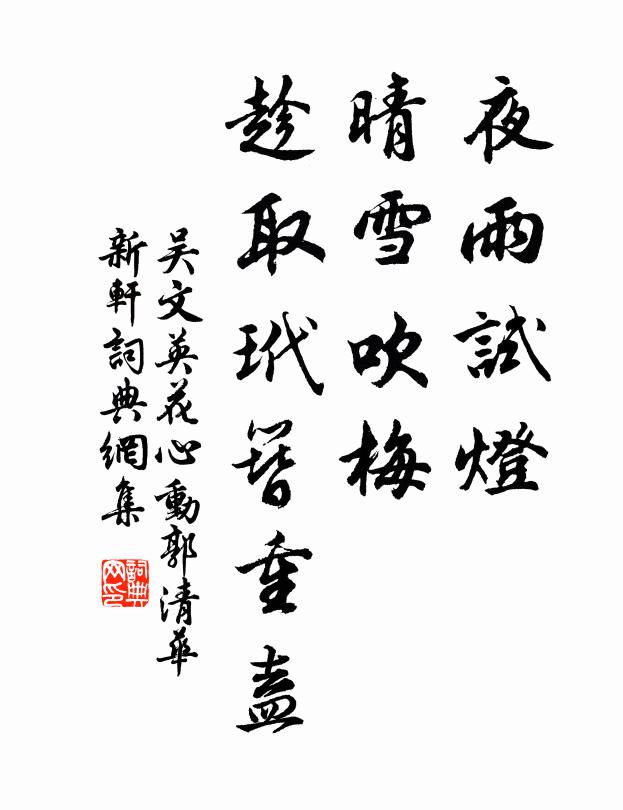 夜雨試燈
晴雪吹梅
趁取玳簪重盍
吴文英花心動郭清華
新軒詞典網集
詞典
网印